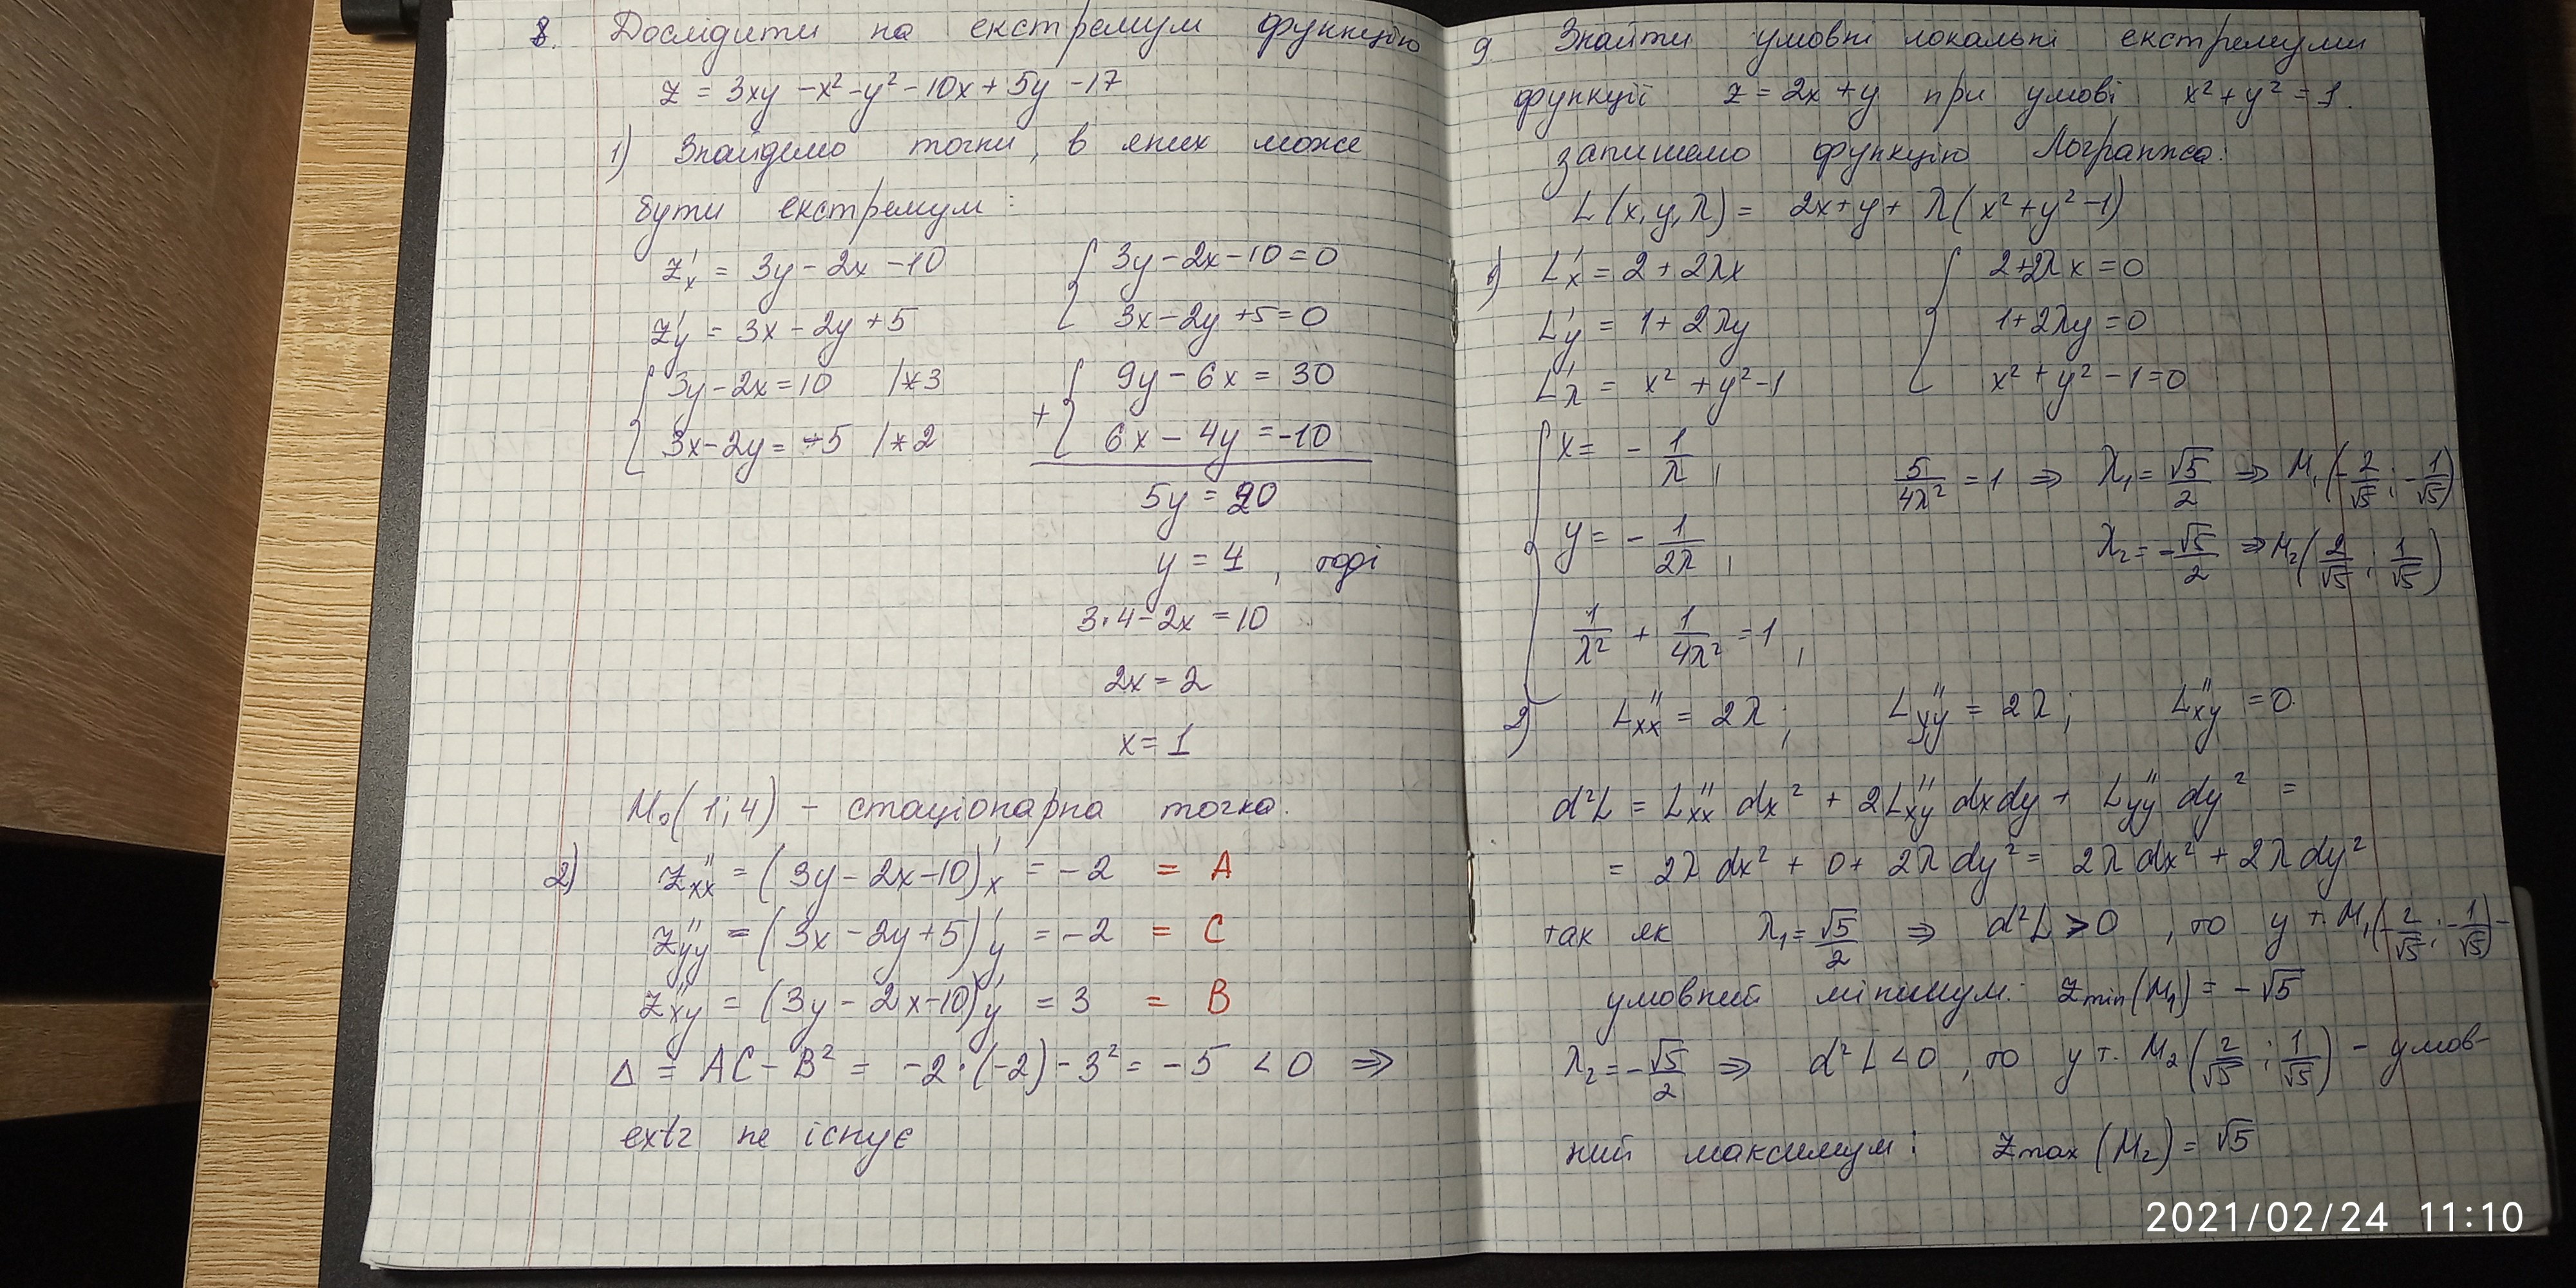 8. Дослідити на екстремум функцію
z = 3xy - x² - y² - 10x + 5y - 17
1) Знайдемо точки, в яких може
бути екстремум:
z'x = 3y - 2x - 10
{ 3y - 2x - 10 = 0
z'y = 3x - 2y + 5
3x - 2y + 5 = 0
{ 3y - 2x = 10 /*3
{ 9y - 6x = 30
3x - 2y = -5 /*2
+ 6x - 4y = -10
5y = 20
y = 4, тоді
3·4 - 2x = 10
2x = 2
x = 1
M₀(1; 4) - стаціонарна точка.
2) z''xx = (3y - 2x - 10)'x = -2 = A
z''yy = (3x - 2y + 5)'y = -2 = C
z''xy = (3y - 2x - 10)'y = 3 = B
Δ = AC - B² = -2·(-2) - 3² = -5 < 0 ⇒
extr не існує
9. Знайти умовні локальні екстремуми
функції z = 2x + y при умові x² + y² = 1.
запишемо функцію Лагранжа:
L(x, y, λ) = 2x + y + λ(x² + y² - 1)
1) L'x = 2 + 2λx
{ 2 + 2λx = 0
L'y = 1 + 2λy
1 + 2λy = 0
L'λ = x² + y² - 1
x² + y² - 1 = 0
{ x = -1/λ,
5/4λ² = 1 ⇒ λ₁ = √5/2 ⇒ M₁(-2/√5; -1/√5)
y = -1/2λ,
λ₂ = -√5/2 ⇒ M₂(2/√5; 1/√5)
1/λ² + 1/4λ² = 1,
2) L''xx = 2λ; L''yy = 2λ; L''xy = 0.
d²L = L''xx dx² + 2L''xy dxdy + L''yy dy² =
= 2λ dx² + 0 + 2λ dy² = 2λ dx² + 2λ dy²
так як λ₁ = √5/2 ⇒ d²L > 0, то у т. M₁(-2/√5; -1/√5) -
умовний мінімум: z min(M₁) = -√5
λ₂ = -√5/2 ⇒ d²L < 0, то у т. M₂(2/√5; 1/√5) - умов-
ний максимум: z max(M₂) = √5
2021/02/24 11:10